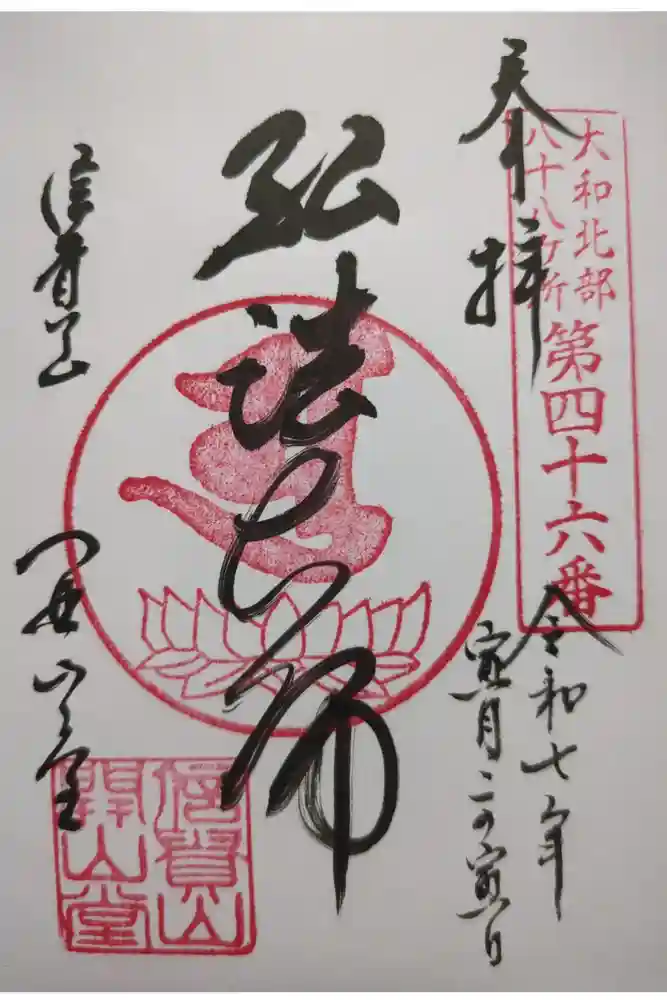 奉拝
大和北部
八十八ヶ所
第四十六番
令和七年
寅月二の寅日
弘法大師
信貴山
開山堂
信貴山
開山堂